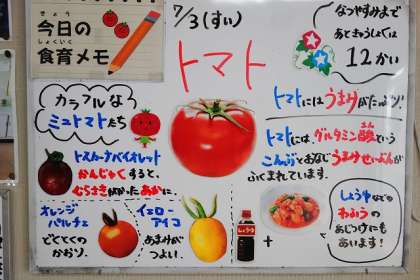 きょう
今日の
しょくいく
食育メモ
7/3(すい)
トマト
なつやすみまで
あときゅうしょくは
12かい
カラフルな
ミニトマトたち
トマトにはうまみがたっぷり!
トスカーナバイオレット
かんじゅくすると、
むらさきがかったあかに。
トマトには、グルタミン酸という
こんぶとおなじうまみせいぶんが
ふくまれています。
オレンジ
パルチェ
どくとくの
かおり。
イエロー
アイコ
あまみが
つよい。
しょうゆ
+
しょうゆなどの
わふうの
あじつけにも
あいます!